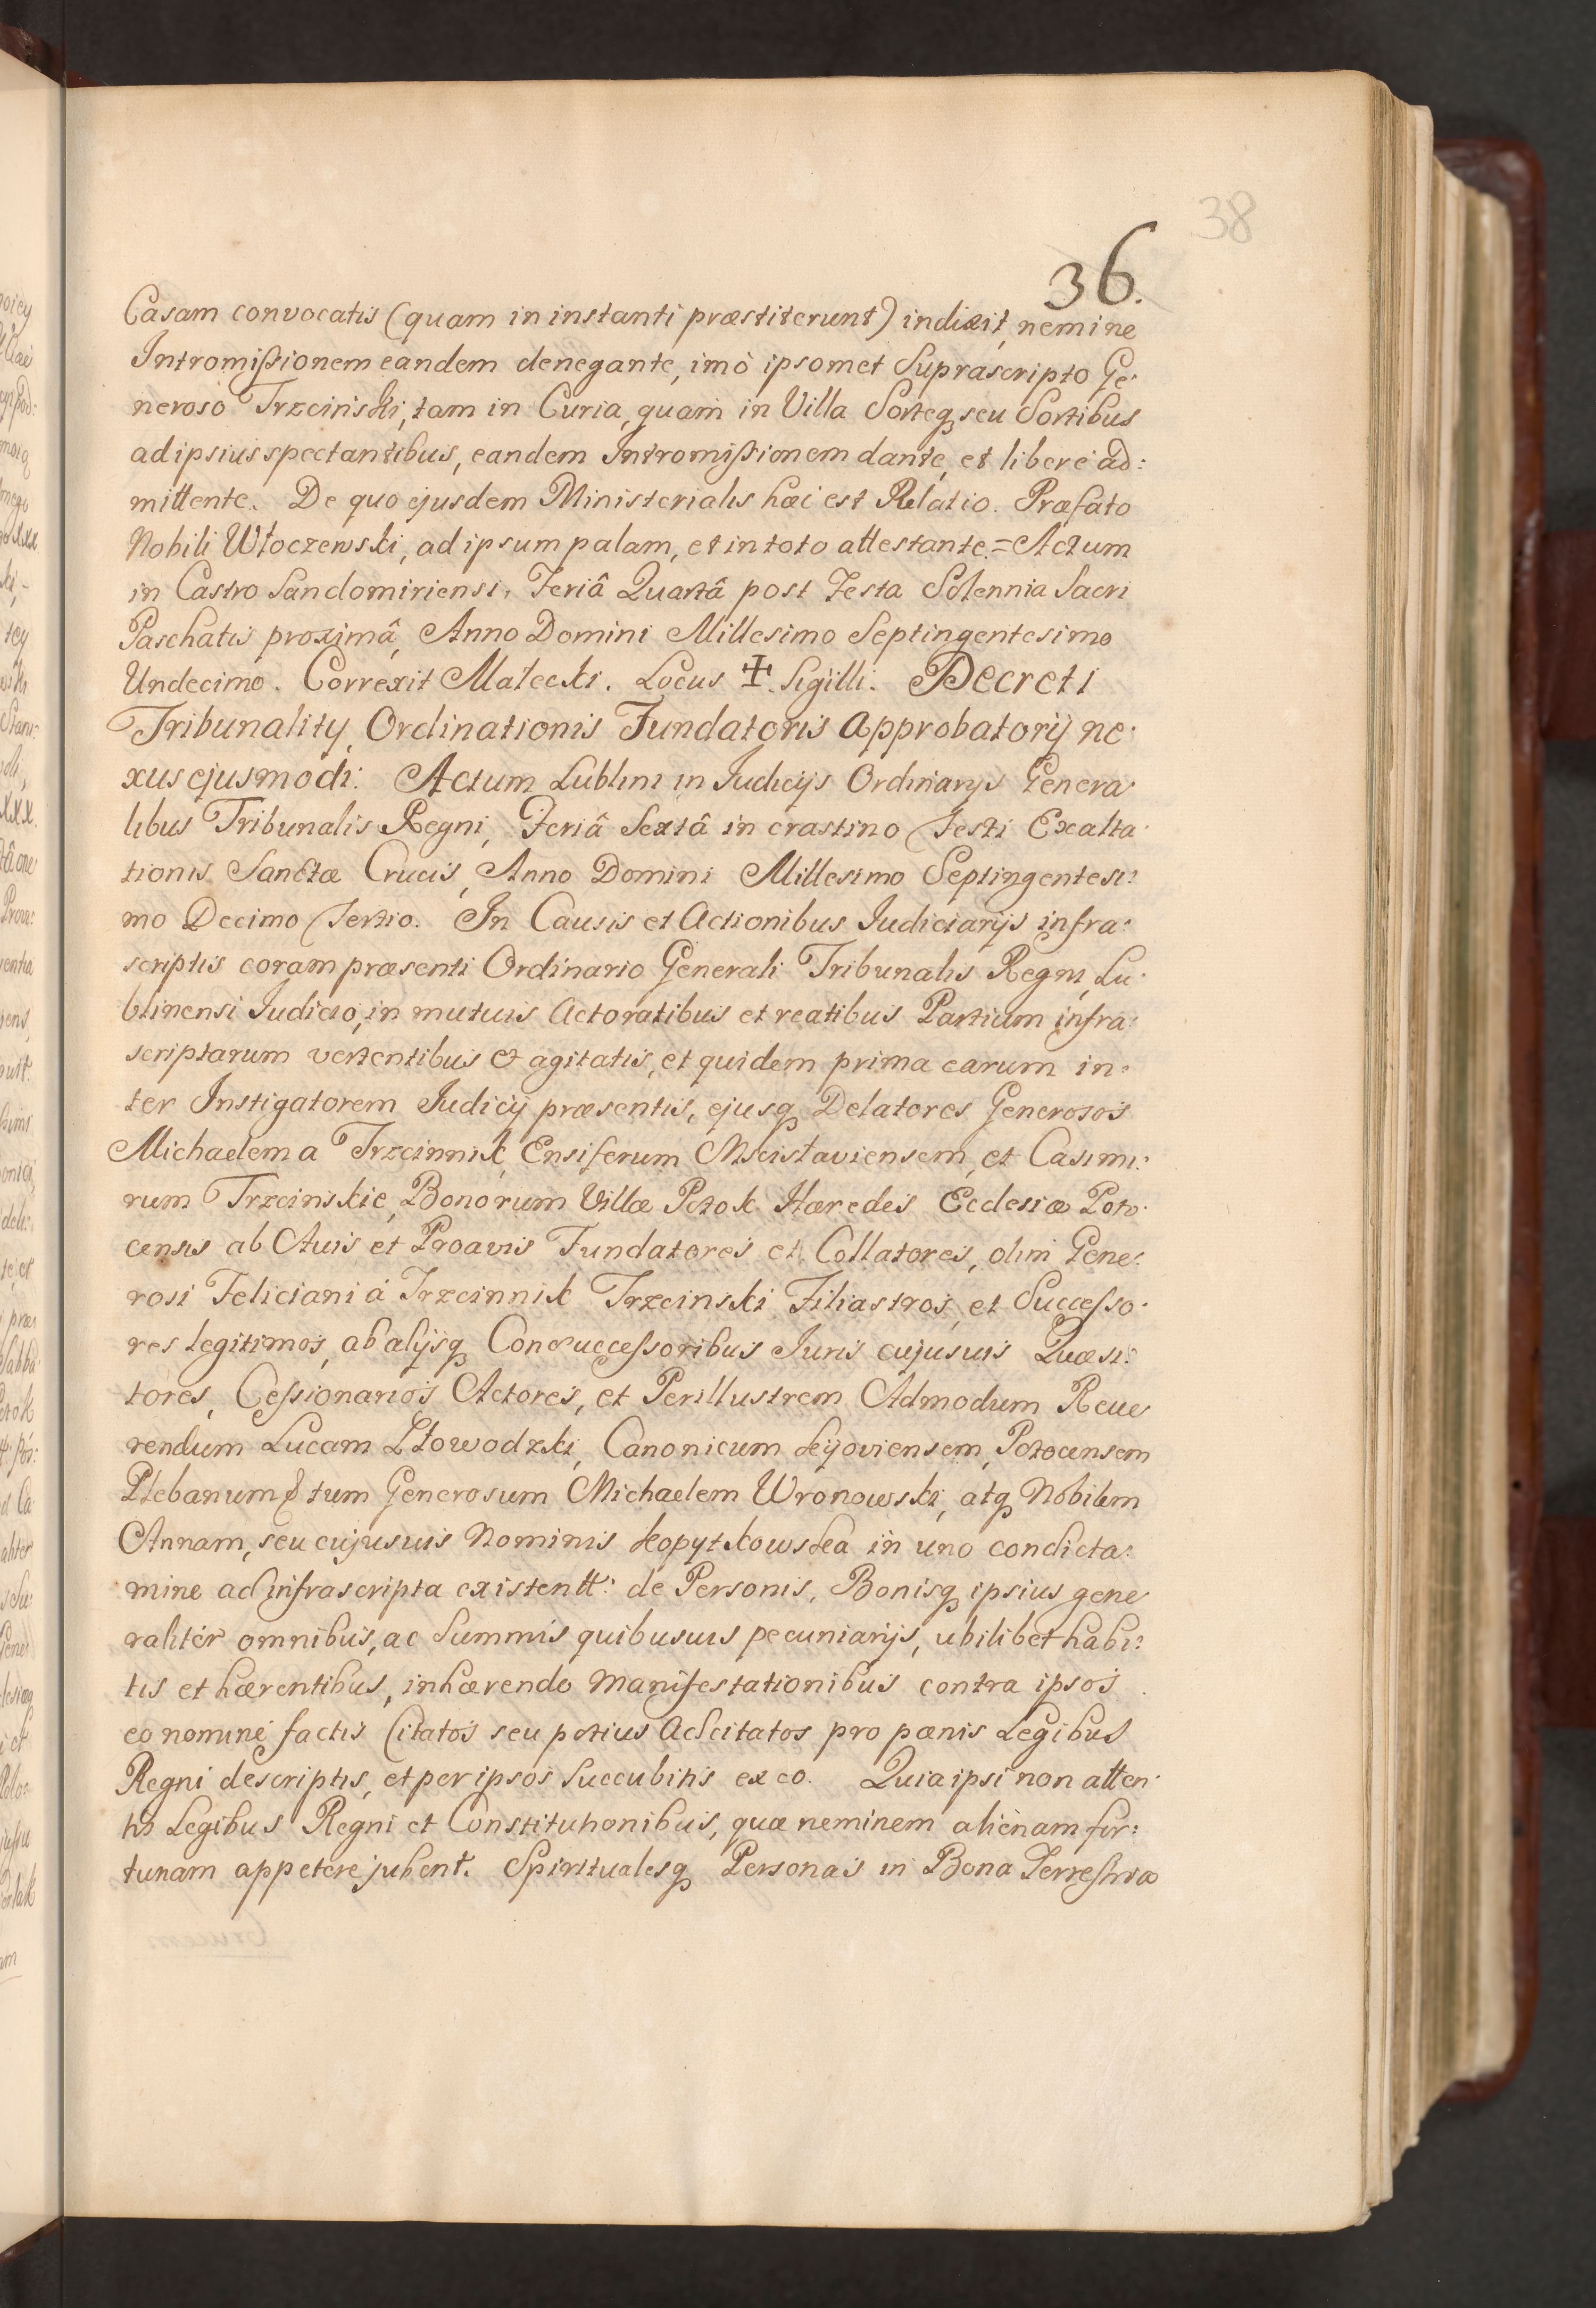 38
36.
Casam convocatis (quam in instanti præstiterunt) indixit, nemine
Intromißionem eandem denegante, imò ipsomet Suprascripto Ge:
neroso Trzcinski, tam in Curia, quam in Villa Sorteq, seu Sortibus
ad ipsius spectantibus, eandem Intromißionem dante, et libere ad:
mittente. De quo ejusdem Ministerialis hæc est Relatio. Præfato
Nobili Włoczewski, ad ipsum palam, et in toto attestante. = Actum
in Castro Sandomiriensi, Feriâ Quartâ post Festa Solennia Sacri
Paschatis proximâ, Anno Domini Millesimo Septingentesimo
Undecimo. Correxit Małecki. Locus ✠. Sigilli. Decreti
Tribunality, Ordinationis Fundatoris Approbatorij ne:
xus ejusmodi: Actum Lublini in Judicijs Ordinarijs Genera:
libus Tribunalis Regni, Feriâ Sextâ in crastino Festi Exalta:
tionis Sanctæ Crucis, Anno Domini Millesimo Septingentesi:
mo Decimo Tertio. In Causis et Actionibus Judiciarijs infra:
scriptis coram præsenti Ordinario Generali Tribunalis Regni, Lu:
blinensi Judicio, in mutuis Actoratibus et reatibus Partium infra:
scriptarum vertentibus & agitatis, et quidem prima earum in:
ter Instigatorem Judicij præsentis, ejusq Delatores Generosos
Michaelem a Trzcinnik, Ensiferum Mscislaviensem, et Casimi:
rum Trzcinskie, Bonorum Villæ Potok Hæredes Ecclesiæ Poto:
censis ab Avis et Proavis Fundatores et Collatores, olim Gene:
rosi Feliciani á Trzcinnik Trzcinski Filiastros, et Succeßo:
res legitimos, ab alijsq Consucceßoribus Juris cujusvis Quæsi:
tores, Ceßionarios Actores, et Perillustrem Admodum Reve
rendum Lucam Słowodzki, Canonicum Kijoviensem, Potocensem
Plebanum & tum Generosum Michaelem Wronowski, atq Nobilem
Annam, seu cujusvis Nominis Kopytkowska in uno condicta:
mine ad infrascripta existentt: de Personis, Bonisq ipsius gene
raliter omnibus, ac Summis quibusvis pecuniarijs, ubilibet habi:
tis et hærentibus, inhærendo Manifestationibus contra ipsos
eo nomine factis Citatos seu potius Adcitatos pro pœnis Legibus
Regni descriptis, et per ipsos Succubitis ex eo. Quia ipsi non atten:
tis Legibus Regni et Constitutionibus, quæ neminem alienam for:
tunam appetere jubent. Spiritualesq Personas in Bona Terrestria